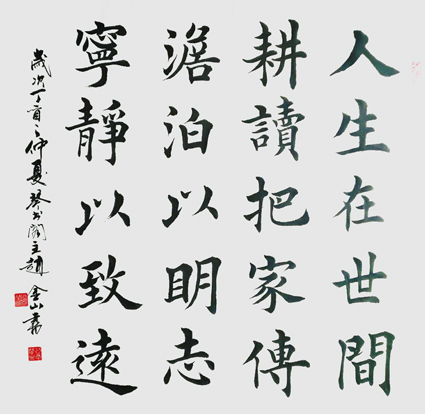 人生在世間
耕讀把家傳
澹泊以明志
寧靜以致遠
歲次丁酉之仲夏琴書閣主趙金山書